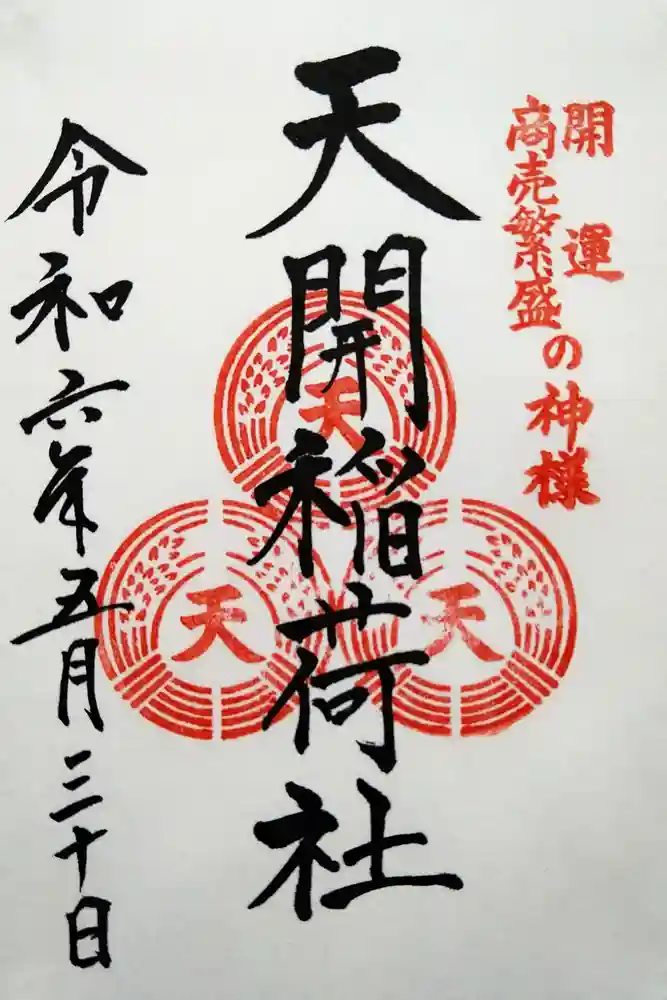 開運
商売繁盛
の神様
天開稲荷社
天
天
天
令和六年五月三十日